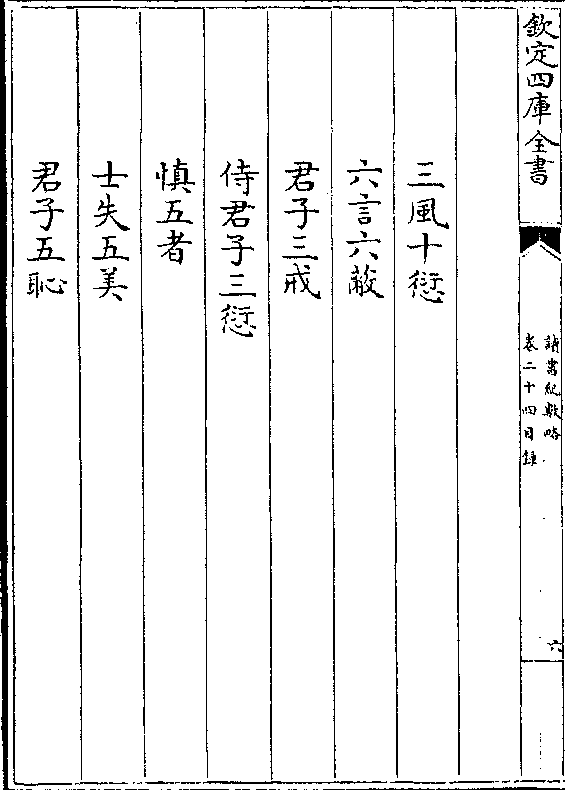 欽定四庫全書
讀書紀數略
卷二十四目錄
六
三風十愆
六言六蔽
君子三戒
侍君子三愆
慎五者
士失五美
君子五恥